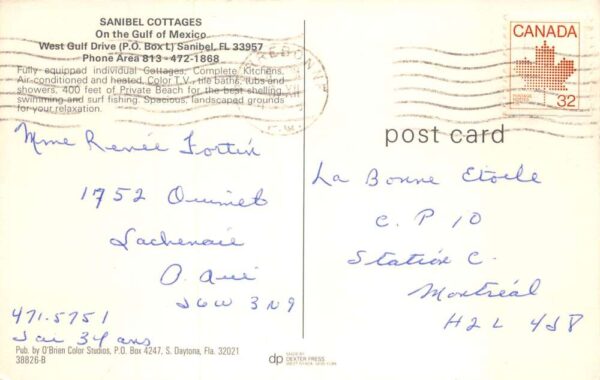 SANIBEL COTTAGES
On the Gulf of Mexico
West Gulf Drive (P.O. Box L) Sanibel, FL 33957
Phone Area 813 - 472-1868
Fully equipped individual Cottages, Complete Kitchens,
Air-conditioned and heated, Color T.V., tile baths, tubs and
showers, 400 feet of Private Beach for the best shelling,
swimming and surf fishing. Spacious, landscaped grounds
for your relaxation.
CANADA
32
post card
Mme Renée Fortin
1752 Ouimet
Lachenaie
P. Qué
J6W 3N9
471-5751
J'ai 34 ans
La Bonne Etoile
C. P 10
Station C.
Montréal
H2L 4J8
Pub. by O'Brien Color Studios, P.O. Box 4247, S. Daytona, Fla. 32021
38826-B
dp
MADE BY
DEXTER PRESS